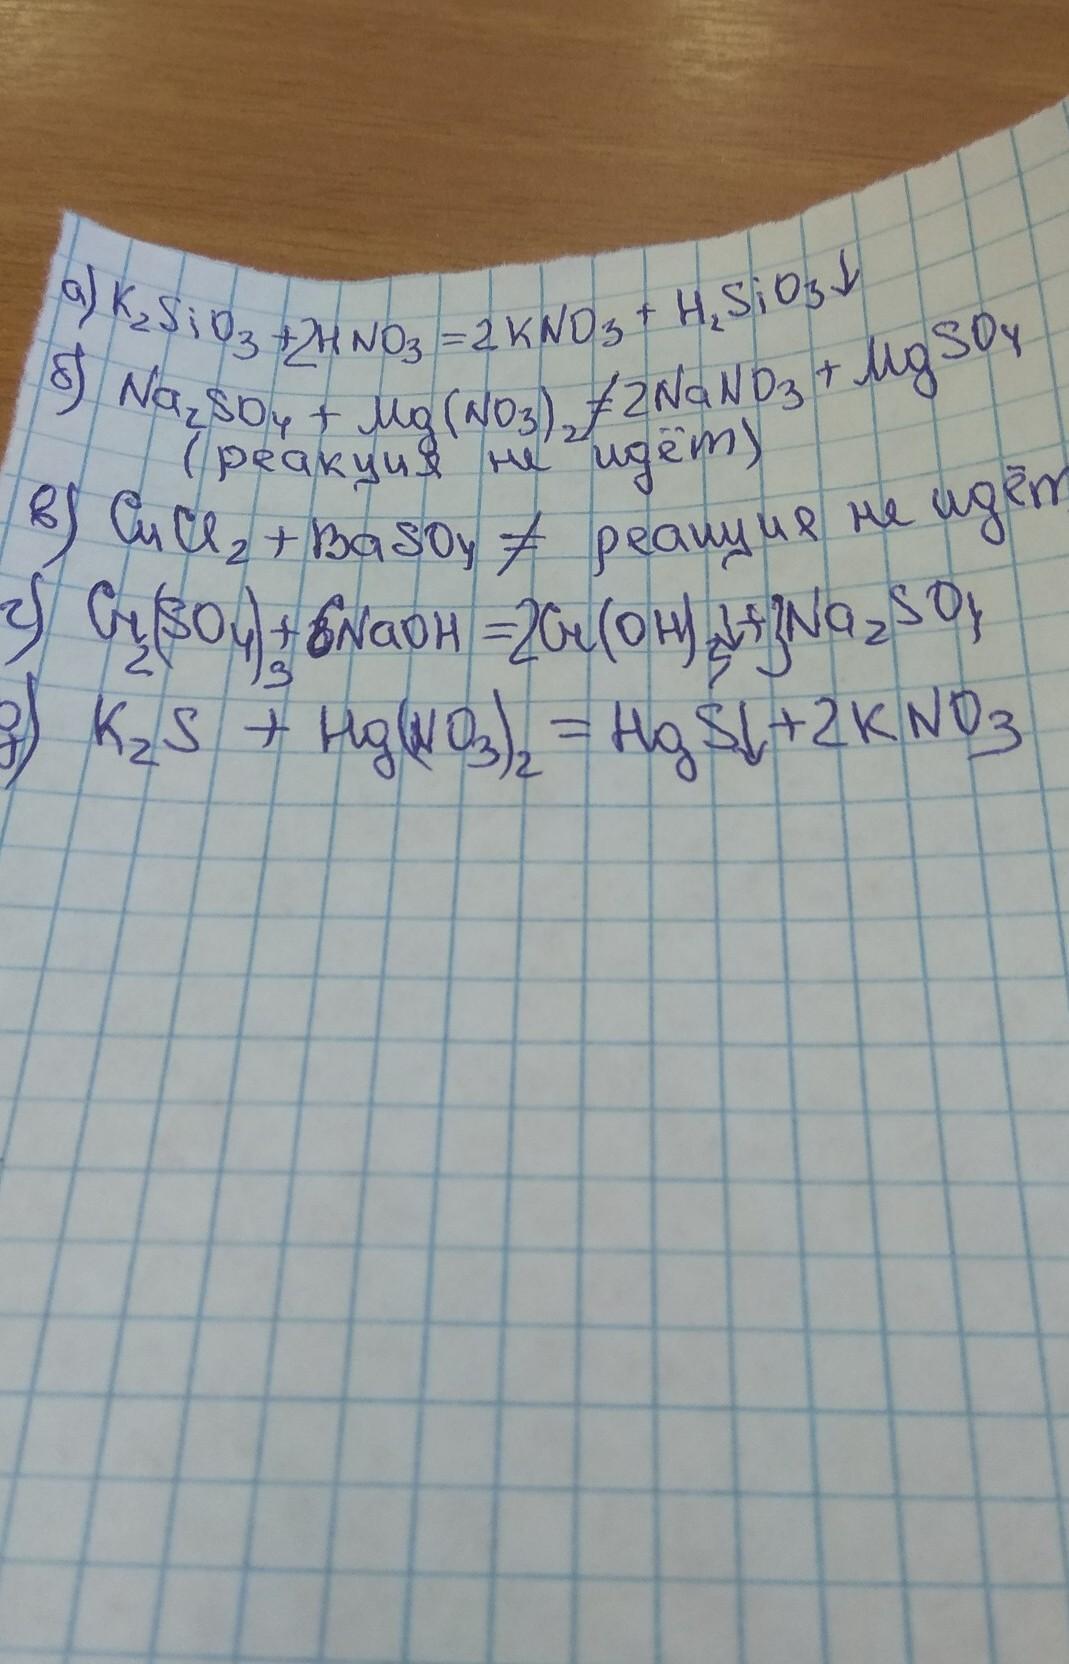 а) K₂SiO₃ + 2HNO₃ = 2KNO₃ + H₂SiO₃↓
б) Na₂SO₄ + Mg(NO₃)₂ ≠ 2NaNO₃ + MgSO₄
(реакция не идёт)
в) CuCl₂ + BaSO₄ ≠ реакция не идёт
г) Cr₂(SO₄)₃ + 6NaOH = 2Cr(OH)₃↓ + 3Na₂SO₄
д) K₂S + Hg(NO₃)₂ = HgS↓ + 2KNO₃